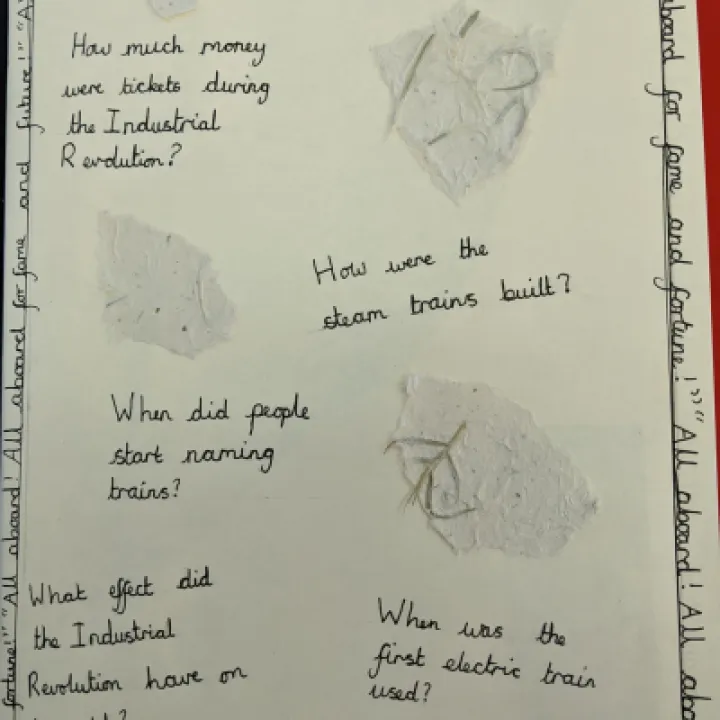 How much money
were tickets during
the Industrial
Revolution?
How were the
steam trains built?
When did people
start naming
trains?
What effect did
the Industrial
Revolution have on
When was the
first electric train
used?
fortune!" "All aboard! All aboard for fame and future!" "A
aboard for fame and fortune!" "All aboard! All abo